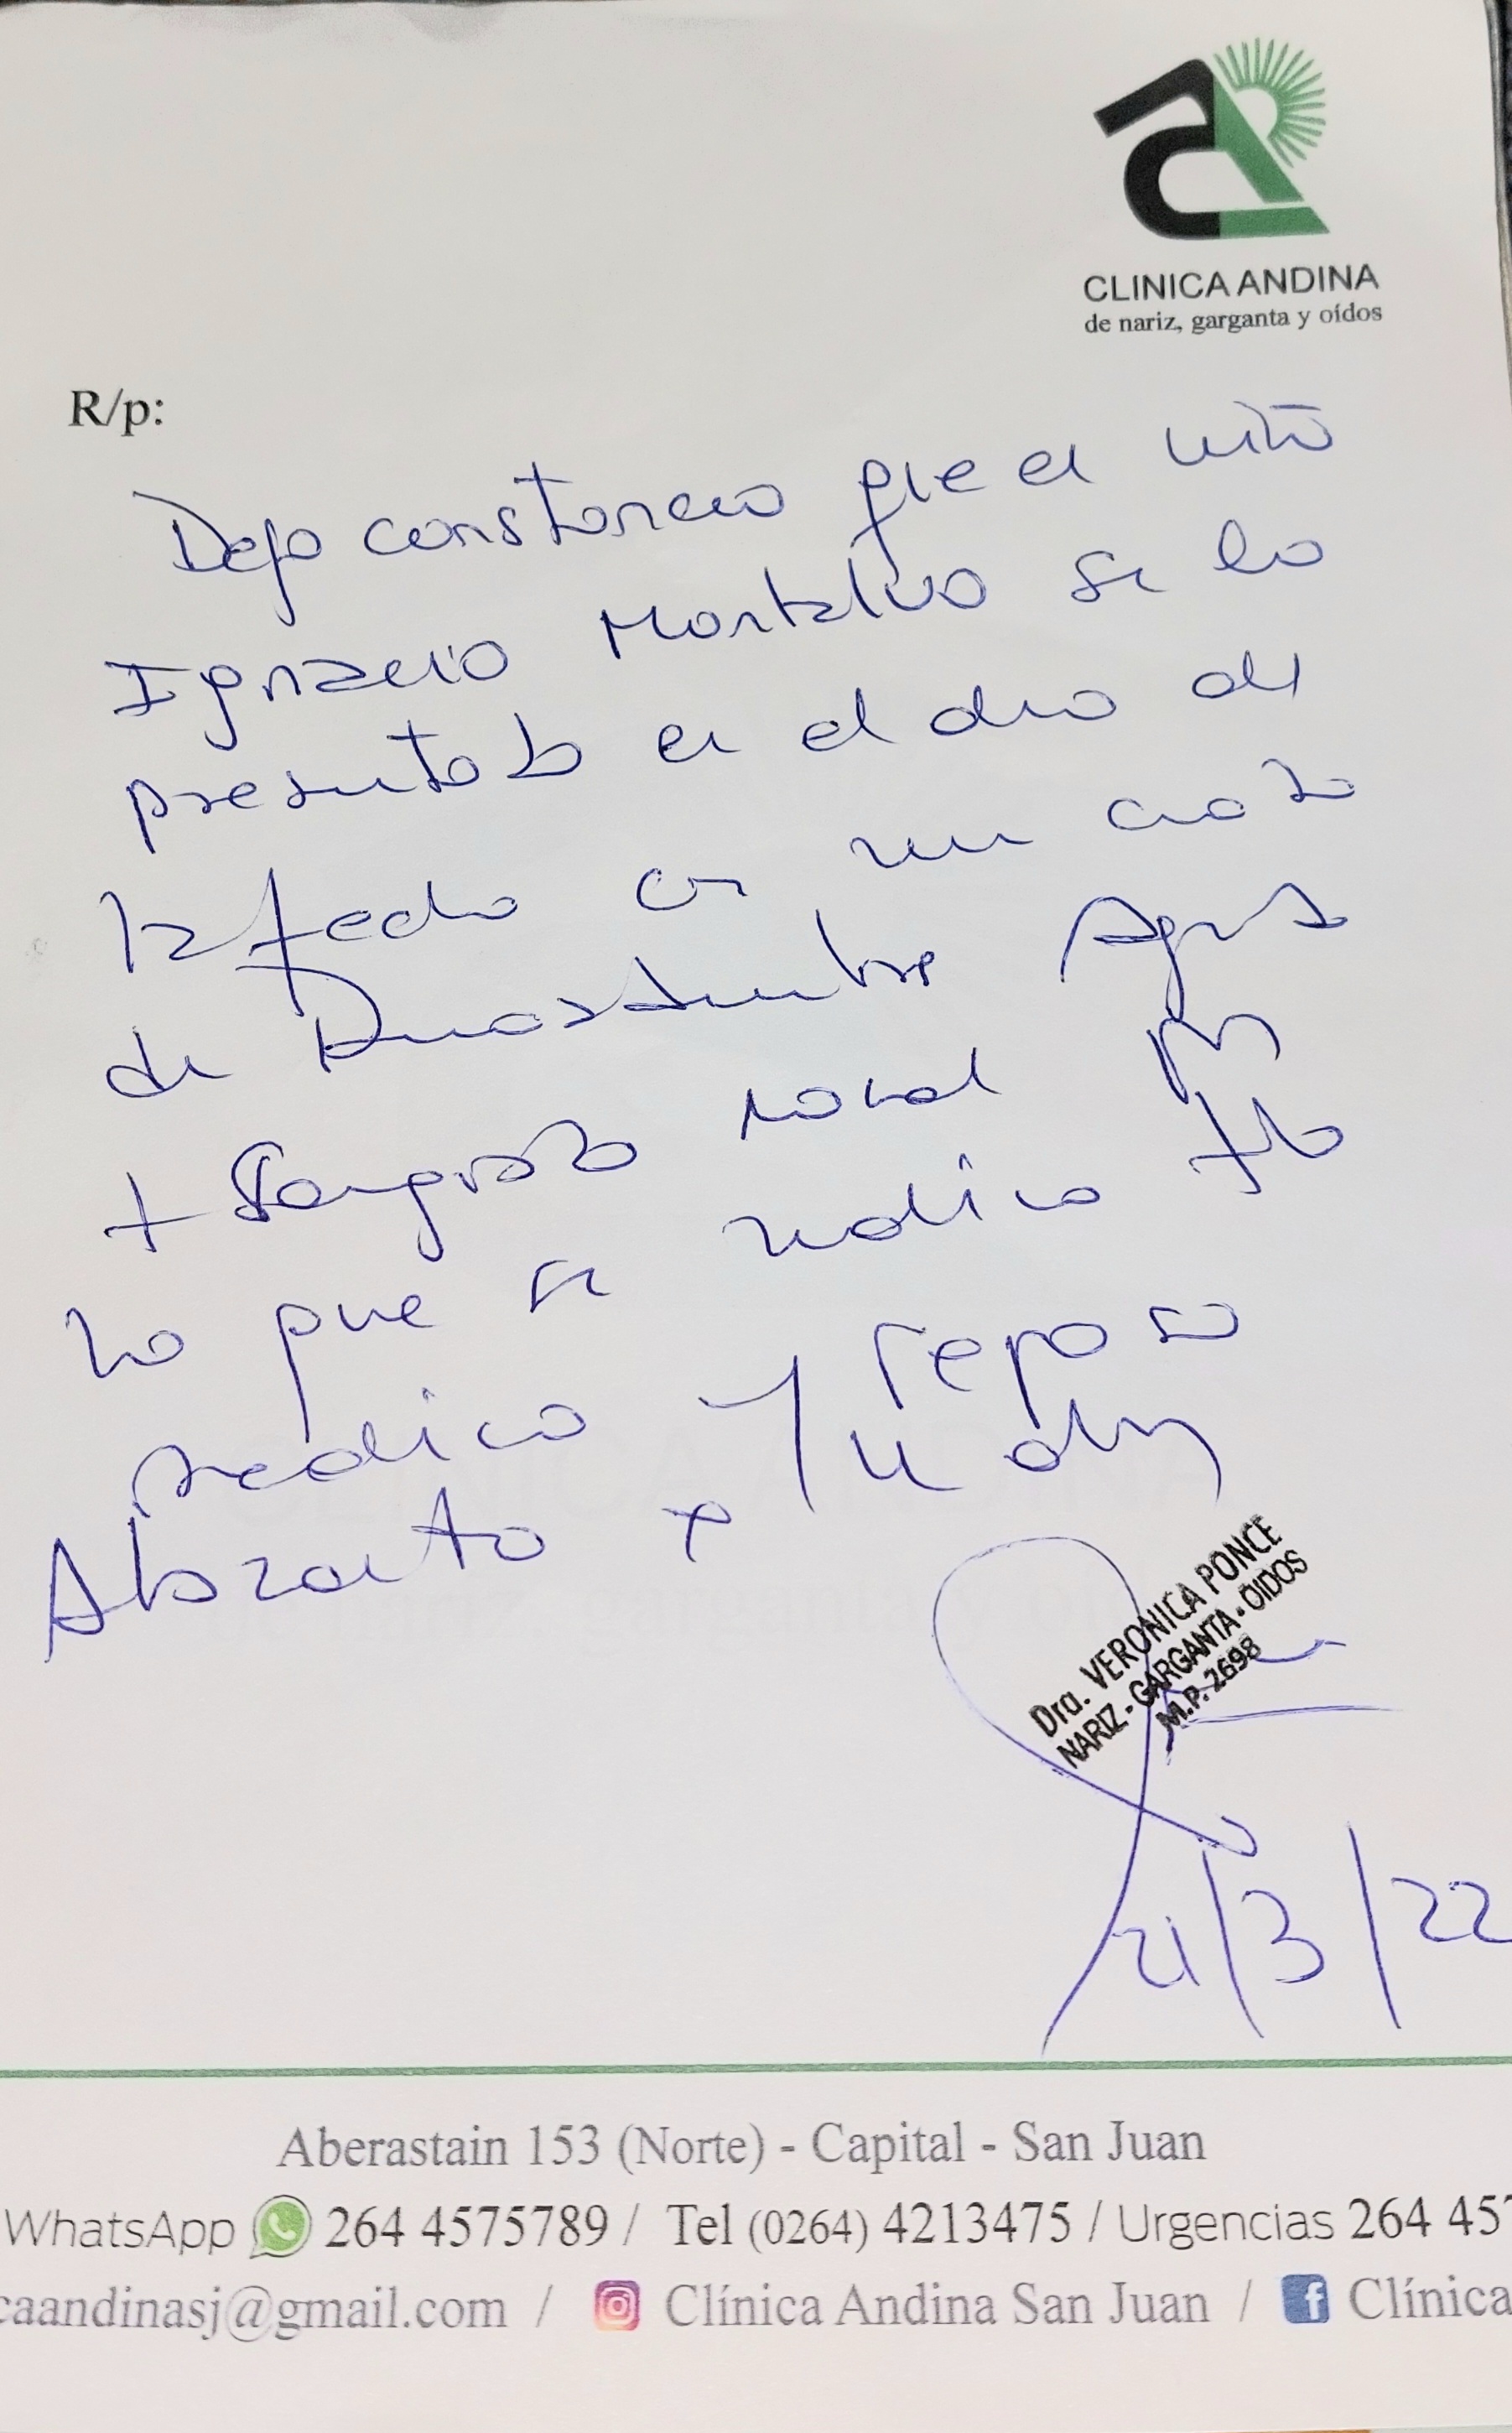 CLINICA ANDINA
de nariz, garganta y oídos
R/p:
Dejo constancia que el niño
Ignacio Montalvo se lo
presentó en el día de
la fecha con un cuadro
de Rinosinusitis Aguda
+ Sangrado nasal por
lo que se indico tto
médico y reposo
Absoluto x
Dra. VERONICA PONCE
NARIZ - GARGANTA - OIDOS
M.P. 2698
21/3/22
Aberastain 153 (Norte) - Capital - San Juan
WhatsApp 264 4575789 / Tel (0264) 4213475 / Urgencias 264 45
caandinasj@gmail.com / Clínica Andina San Juan / Clínica